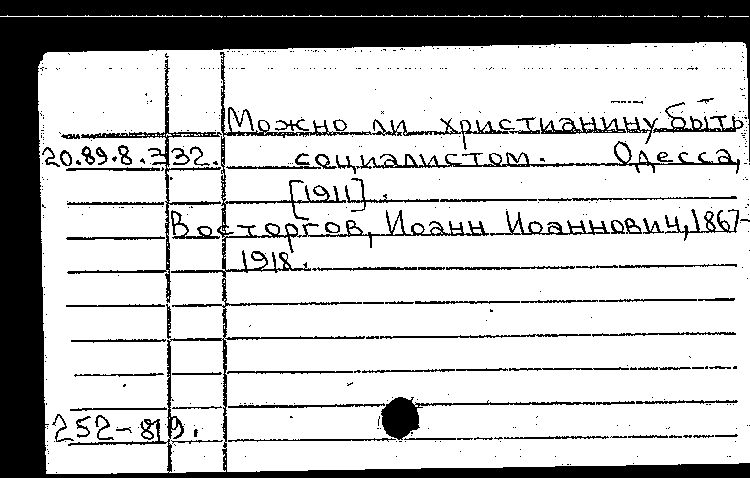 Можно ли христианину быть
20.89.8.332. социалистом. Одесса,
[1911].
Восторгов, Иоанн Иоаннович, 1867-
1918.
252-819.